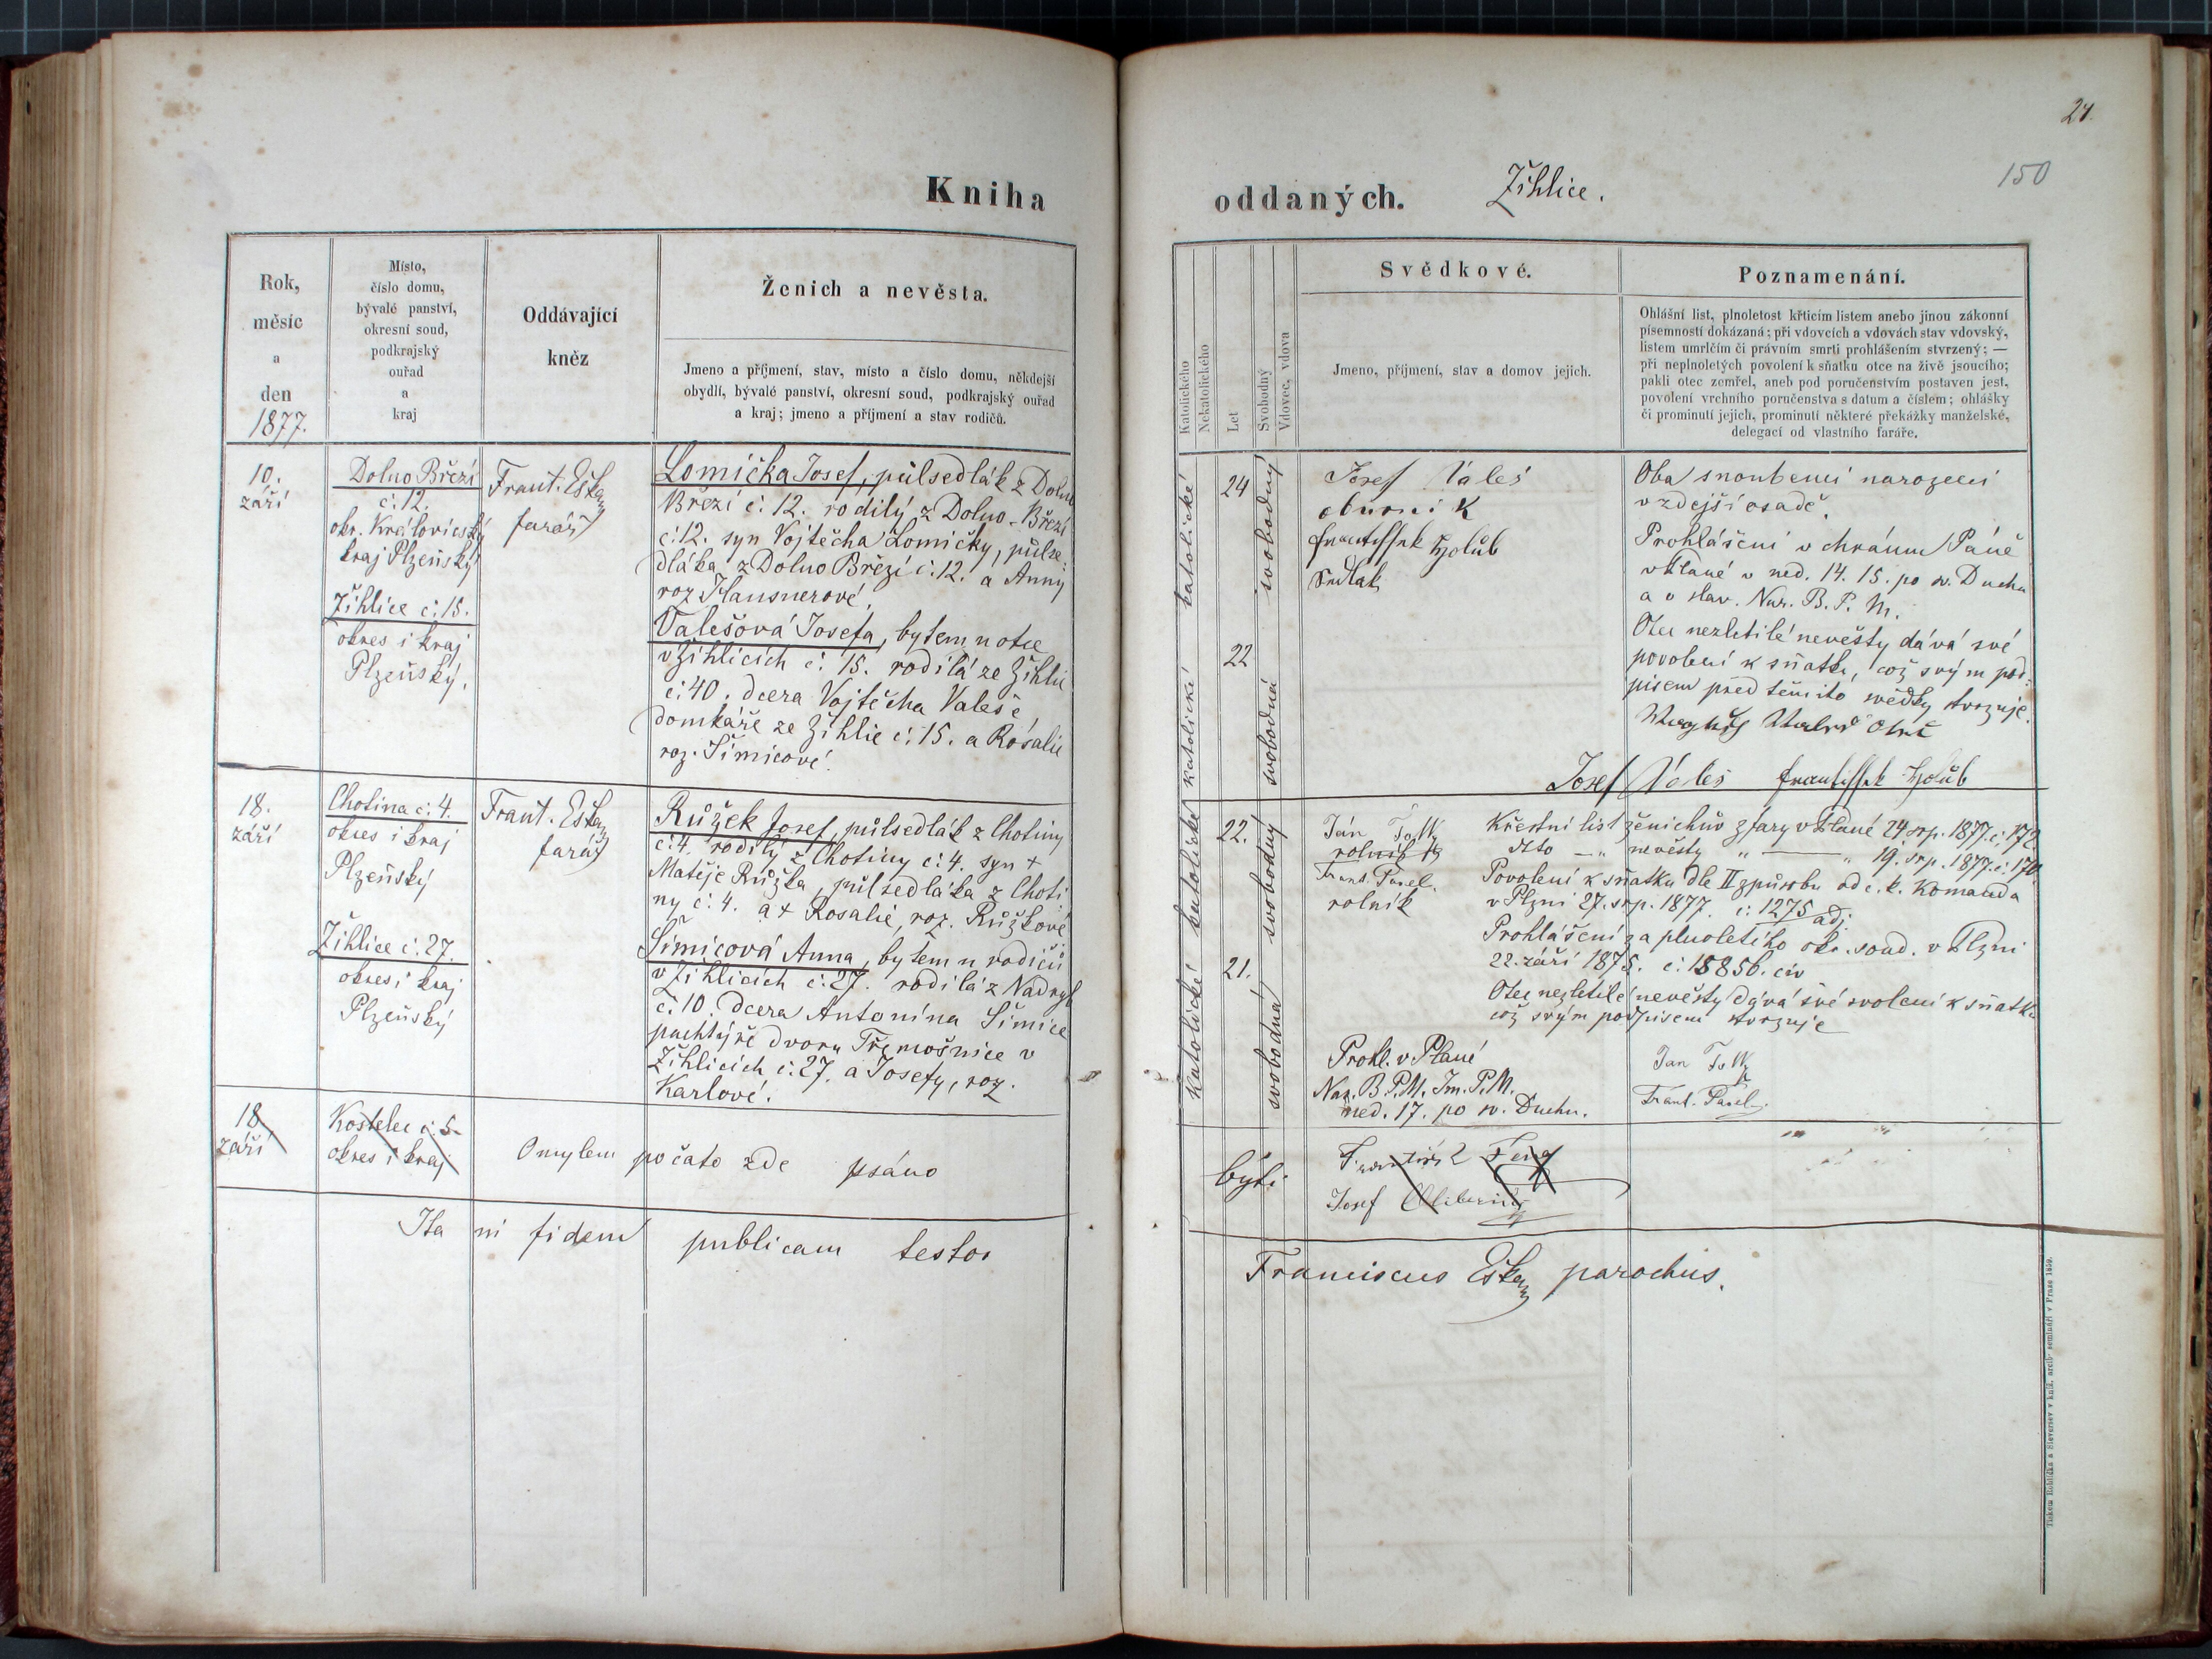 Kniha
Rok,
měsíc
a
den
1877.
Místo,
číslo domu,
bývalé panství,
okresní soud,
podkrajský
ouřad
a
kraj
Oddávající
kněz
Ženich a nevěsta.
Jmeno a příjmení, stav, místo a číslo domu, někdejší
obydlí, bývalé panství, okresní soud, podkrajský ouřad
a kraj; jmeno a příjmení a stav rodičů.
10.
září
Dolno Březí
č: 12.
okr. Královický
kraj Plzeňský
Žihlice č: 15.
okres i kraj
Plzeňský.
Frant. Eška
farář
Lomička Josef, půlsedlák z Dolno
Březí č: 12. rodilý z Dolno-Březí
č: 12. syn Vojtěcha Lomičky, půlse-
dláka z Dolno Březí č: 12. a Anny
roz Hausnerové,
Valešová Josefa, bytem u otce
v Žihlicích č: 15. rodilá ze Žihlic
č: 40. dcera Vojtěcha Valeše,
domkáře ze Žihlic č: 15. a Rosalie
roz. Šimicové.
18.
září
Chotina č: 4.
okres i kraj
Plzeňský
Žihlice č: 27.
okres i kraj
Plzeňský
Frant. Eška
farář
Růžek Josef, půlsedlák z Chotiny
č: 4. rodilý z Chotiny č: 4. syn +
Matěje Růžka, půlsedláka z Choti
ny č: 4. a + Rosalie, roz. Růžkové
Šimicová Anna, bytem u rodičů
v Žihlicích č: 27. rodilá z Nadryb
č. 10. dcera Antonína Šimice
pachtýře dvoru Třemošnice v
Žihlicích č: 27. a Josefy, roz.
Karlové.
18
září
Kostelec č: 5
okres i kraj
Omylem počato zde psáno
Ita ni fidem publicam testor
24.
150
oddaných.
Žihlice.
Katolického
Nekatolického
Let
Svobodný
Vdovec, vdova
Svědkové.
Jmeno, příjmení, stav a domov jejich.
Poznamenání.
Ohlášní list, plnoletost křticím listem anebo jinou zákonní
písemností dokázaná; při vdovcích a vdovách stav vdovský,
listem umrlčím či právním smrti prohlášením stvrzený; —
při neplnoletých povolení k sňatku otce na živě jsoucího;
pakli otec zemřel, aneb pod poručenstvím postaven jest,
povolení vrchního poručenstva s datum a číslem; ohlášky
či prominutí jejich, prominutí některé překážky manželské,
delegací od vlastního faráře.
katolické
24
svobodný
katolické
22
svobodná
Josef Váleš
František Holub
Sedlák
Oba snoubenci narozeni
v zdejší osadě.
Prohlášeni v chrámu Páně
v Plané v ned. 14. 15. po sv. Duchu
a o slav. Nar. B. P. M.
Otec nezletilé nevěsty dává své
povolení k sňatku, což svým pod-
pisem před těmito svědky stvrzuje.
Josef Váleš František Holub
katolické
22.
svobodný
katolické
21.
svobodná
Ján
rolník
Frant. Pavel.
rolník
Křestní list ženichův z fary v Plané 24 srp. 1877. č: 172.
dtto —„ nevěsty „ — „ 19. srp. 1877. č: 170.
Povolení k sňatku dle II způsobu od c. k. Komanda
v Plzni 27. srp. 1877. č: 1275 adj.
Prohlášení za plnoletého okr. soud. v Plzni
22. září 1875. č: 15856. civ
Otec nezletilé nevěsty dává své svolení k sňatku
což svým podpisem stvrzuje
Prohl. v Plané
Nar. B. P. M. Jm. P. M.
ned. 17. po sv. Duchu.
Jan
Frant. Pavel.
býti
František
Josef
Franciscus Eška parochus.